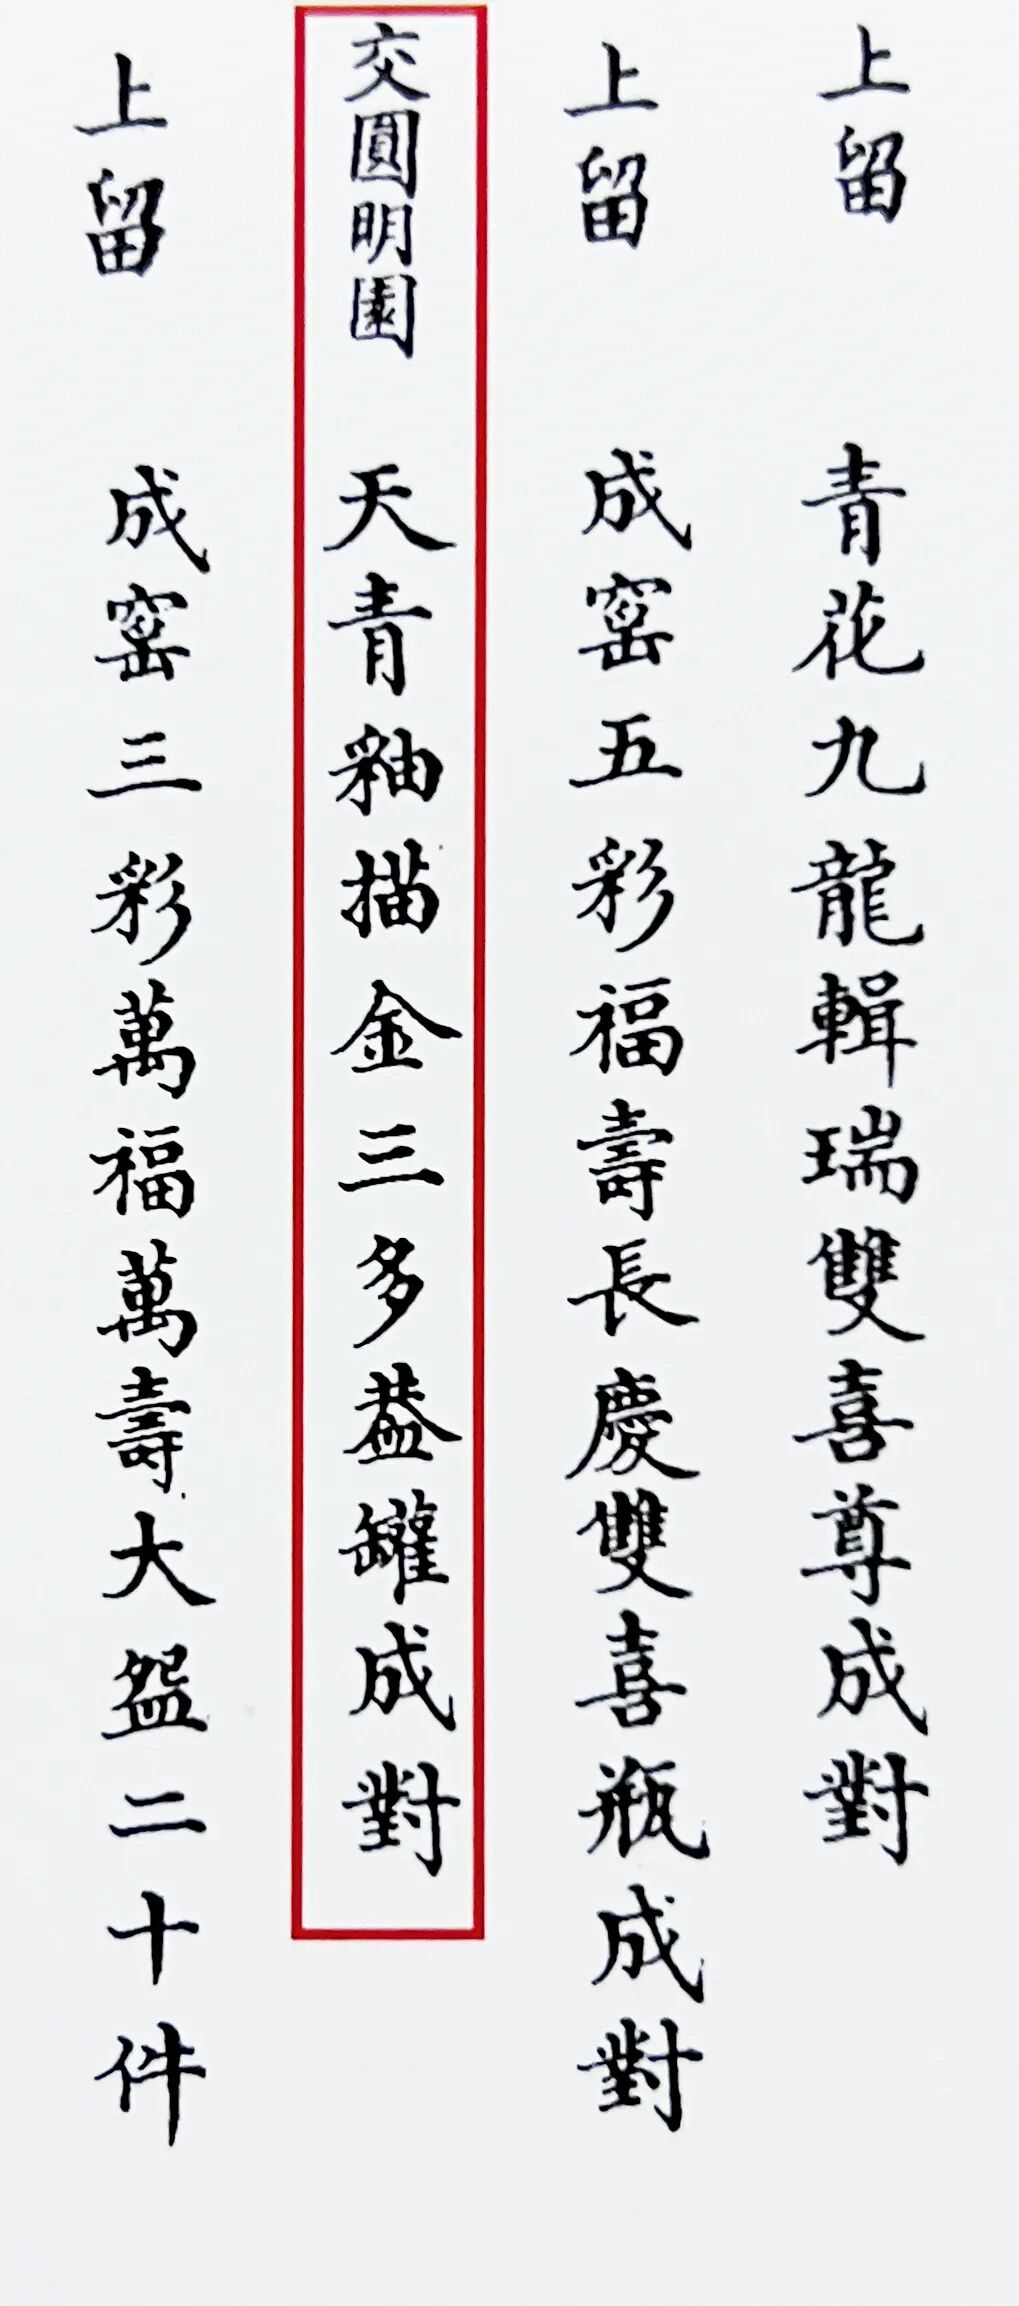 上留 青花九龍輯瑞雙喜尊成對
上留 成窑五彩福壽長慶雙喜瓶成對
交圓明園 天青釉描金三多葢罐成對
上留 成窑三彩萬福萬壽大盌二十件